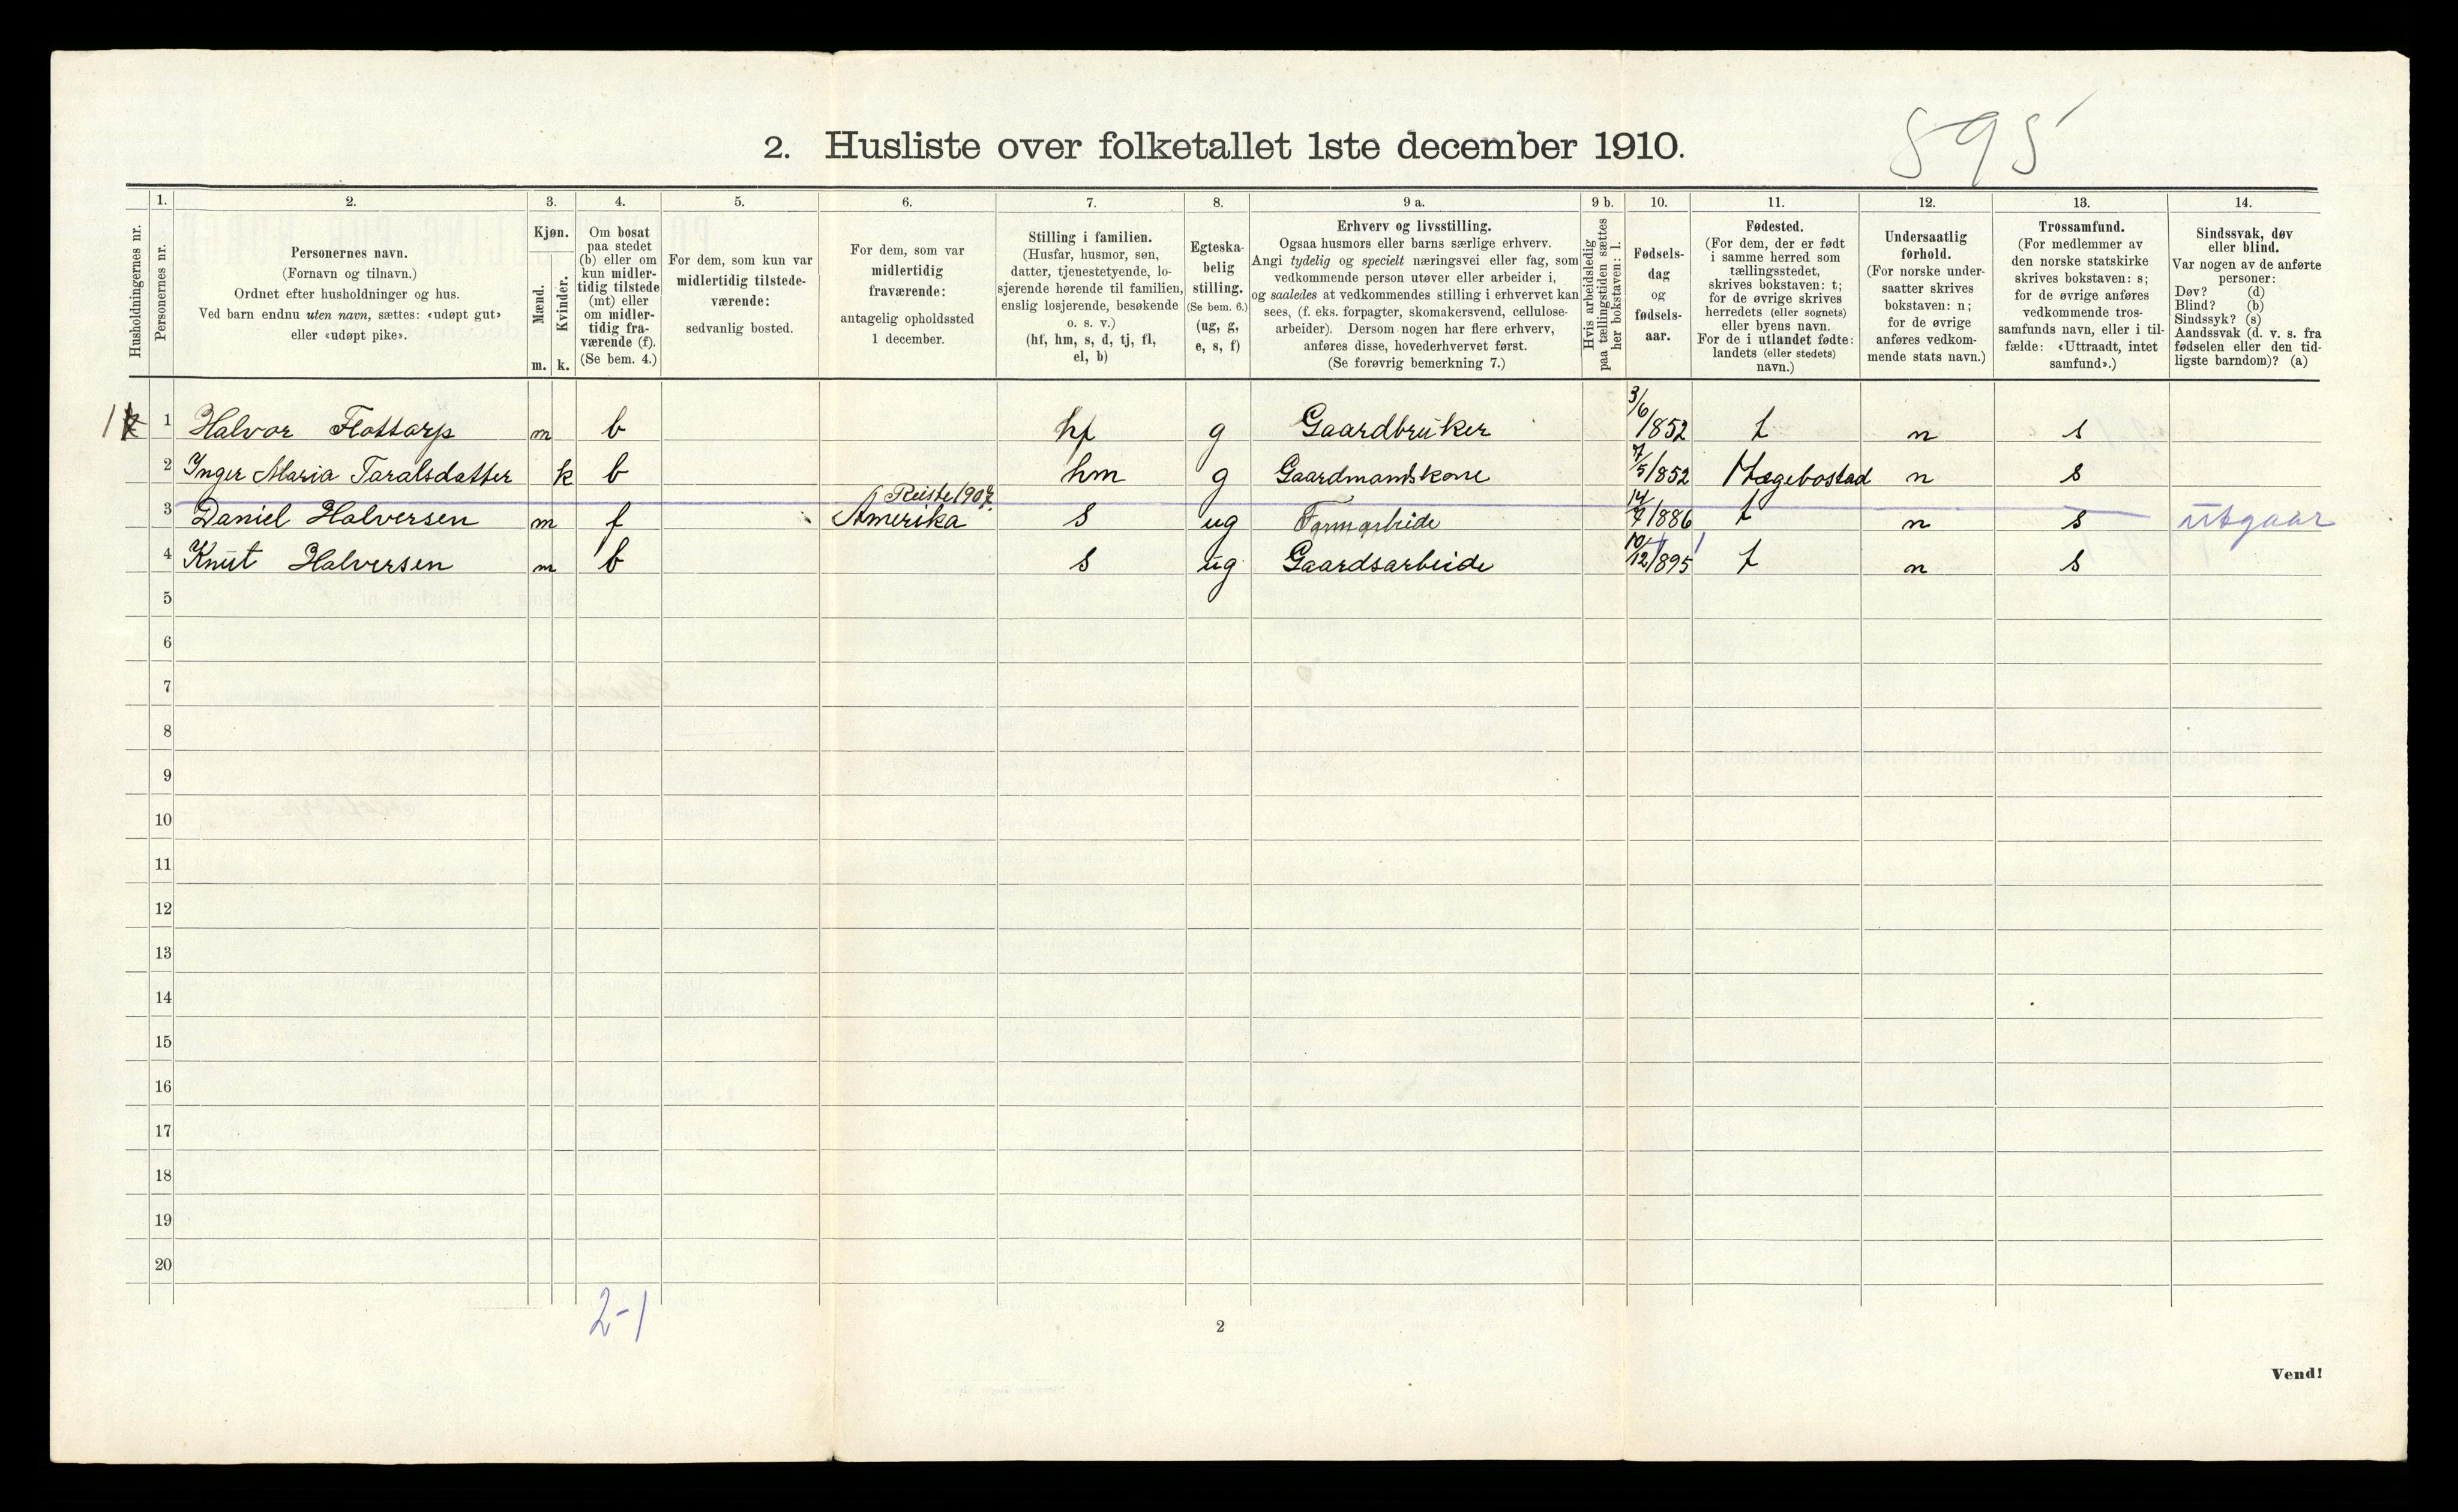 895
2. Husliste over folketallet 1ste december 1910.
Husholdningernes nr.
1.
Personernes nr.
2.
Personernes navn.
(Fornavn og tilnavn.)
Ordnet efter husholdninger og hus.
Ved barn endnu uten navn, sættes: «udøpt gut»
eller «udøpt pike».
3.
Kjøn.
Mænd.
Kvinder.
m. k.
4.
Om bosat
paa stedet
(b) eller om
kun midler-
tidig tilstede
(mt) eller
om midler-
tidig fra-
værende (f).
(Se bem. 4.)
5.
For dem, som kun var
midlertidig tilstede-
værende:
sedvanlig bosted.
6.
For dem, som var
midlertidig
fraværende:
antagelig opholdssted
1 december.
7.
Stilling i familien.
(Husfar, husmor, søn,
datter, tjenestetyende, lo-
sjerende hørende til familien,
enslig losjerende, besøkende
o. s. v.)
(hf, hm, s, d, tj, fl,
el, b)
8.
Egteska-
belig
stilling.
(Se bem. 6.)
(ug, g,
e, s, f)
9 a.
Erhverv og livsstilling.
Ogsaa husmors eller barns særlige erhverv.
Angi tydelig og specielt næringsvei eller fag, som
vedkommende person utøver eller arbeider i,
og saaledes at vedkommendes stilling i erhvervet kan
sees, (f. eks. forpagter, skomakersvend, cellulose-
arbeider). Dersom nogen har flere erhverv,
anføres disse, hovederhvervet først.
(Se forøvrig bemerkning 7.)
9 b.
Hvis arbeidsledig
paa tællingstiden sættes
her bokstaven: l.
10.
Fødsels-
dag
og
fødsels-
aar.
11.
Fødested.
(For dem, der er født
i samme herred som
tællingsstedet,
skrives bokstaven: t;
for de øvrige skrives
herredets (eller sognets)
eller byens navn.
For de i utlandet fødte:
landets (eller stedets)
navn.)
12.
Undersaatlig
forhold.
(For norske under-
saatter skrives
bokstaven: n;
for de øvrige
anføres vedkom-
mende stats navn.)
13.
Trossamfund.
(For medlemmer av
den norske statskirke
skrives bokstaven: s;
for de øvrige anføres
vedkommende tros-
samfunds navn, eller i til-
fælde: «Uttraadt, intet
samfund».)
14.
Sindssvak, døv
eller blind.
Var nogen av de anførte
personer:
Døv? (d)
Blind? (b)
Sindssyk? (s)
Aandssvak (d. v. s. fra
fødselen eller den tid-
ligste barndom)? (a)
1 1 Halvor Flottorp m b hf g Gaardbruker 3/6/852 t n s
2 Inger Maria Taralsdatter k b hm g Gaardmandskone 7/5/852 Hægebostad n s
Reiste 1907.
3 Daniel Halversen m f Amerika s ug Farmarbeide 14/7/886 t n s utgaar
4 Knut Halversen m b s ug Gaardsarbeide 10/12/895 t n s
5
6
7
8
9
10
11
12
13
14
15
16
17
18
19
20
2-1
2
Vend!